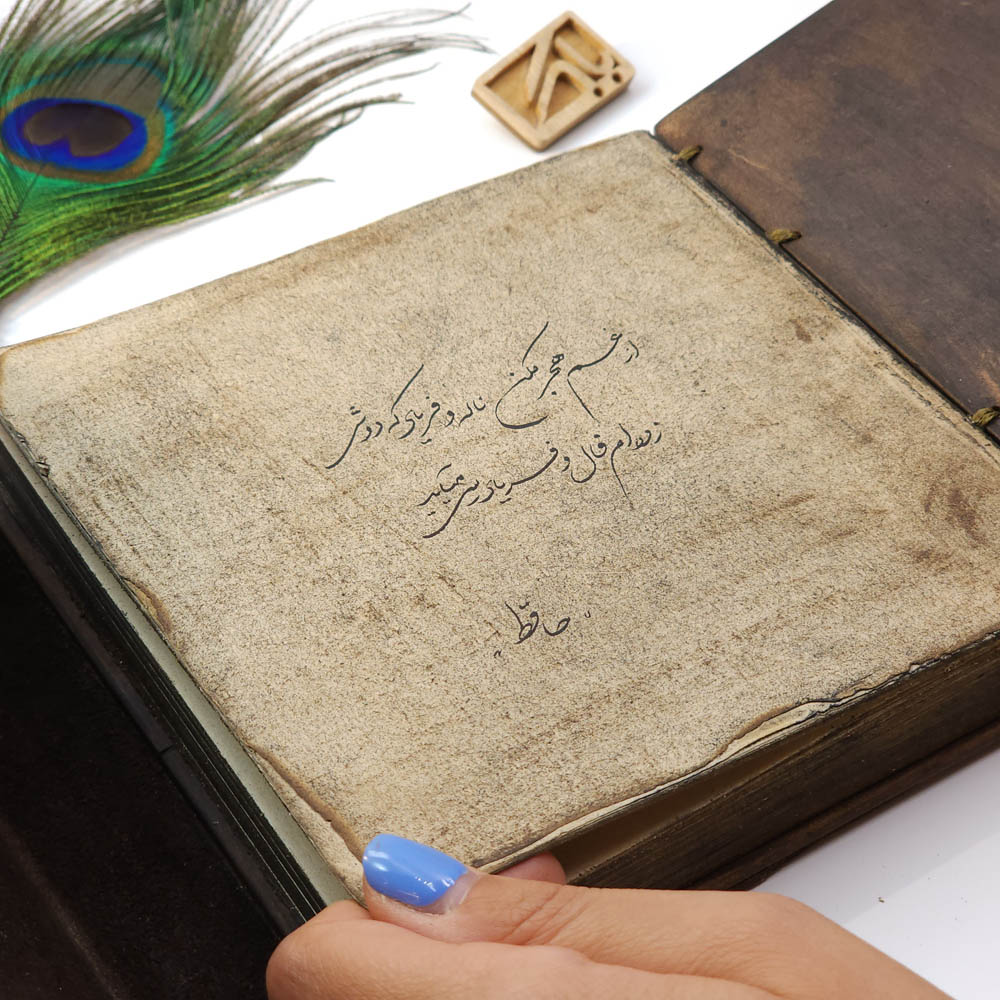 از غم هجر مکن ناله و فریاد که دوش
زده ام فال و فریادرسی میآید
"حافظ"